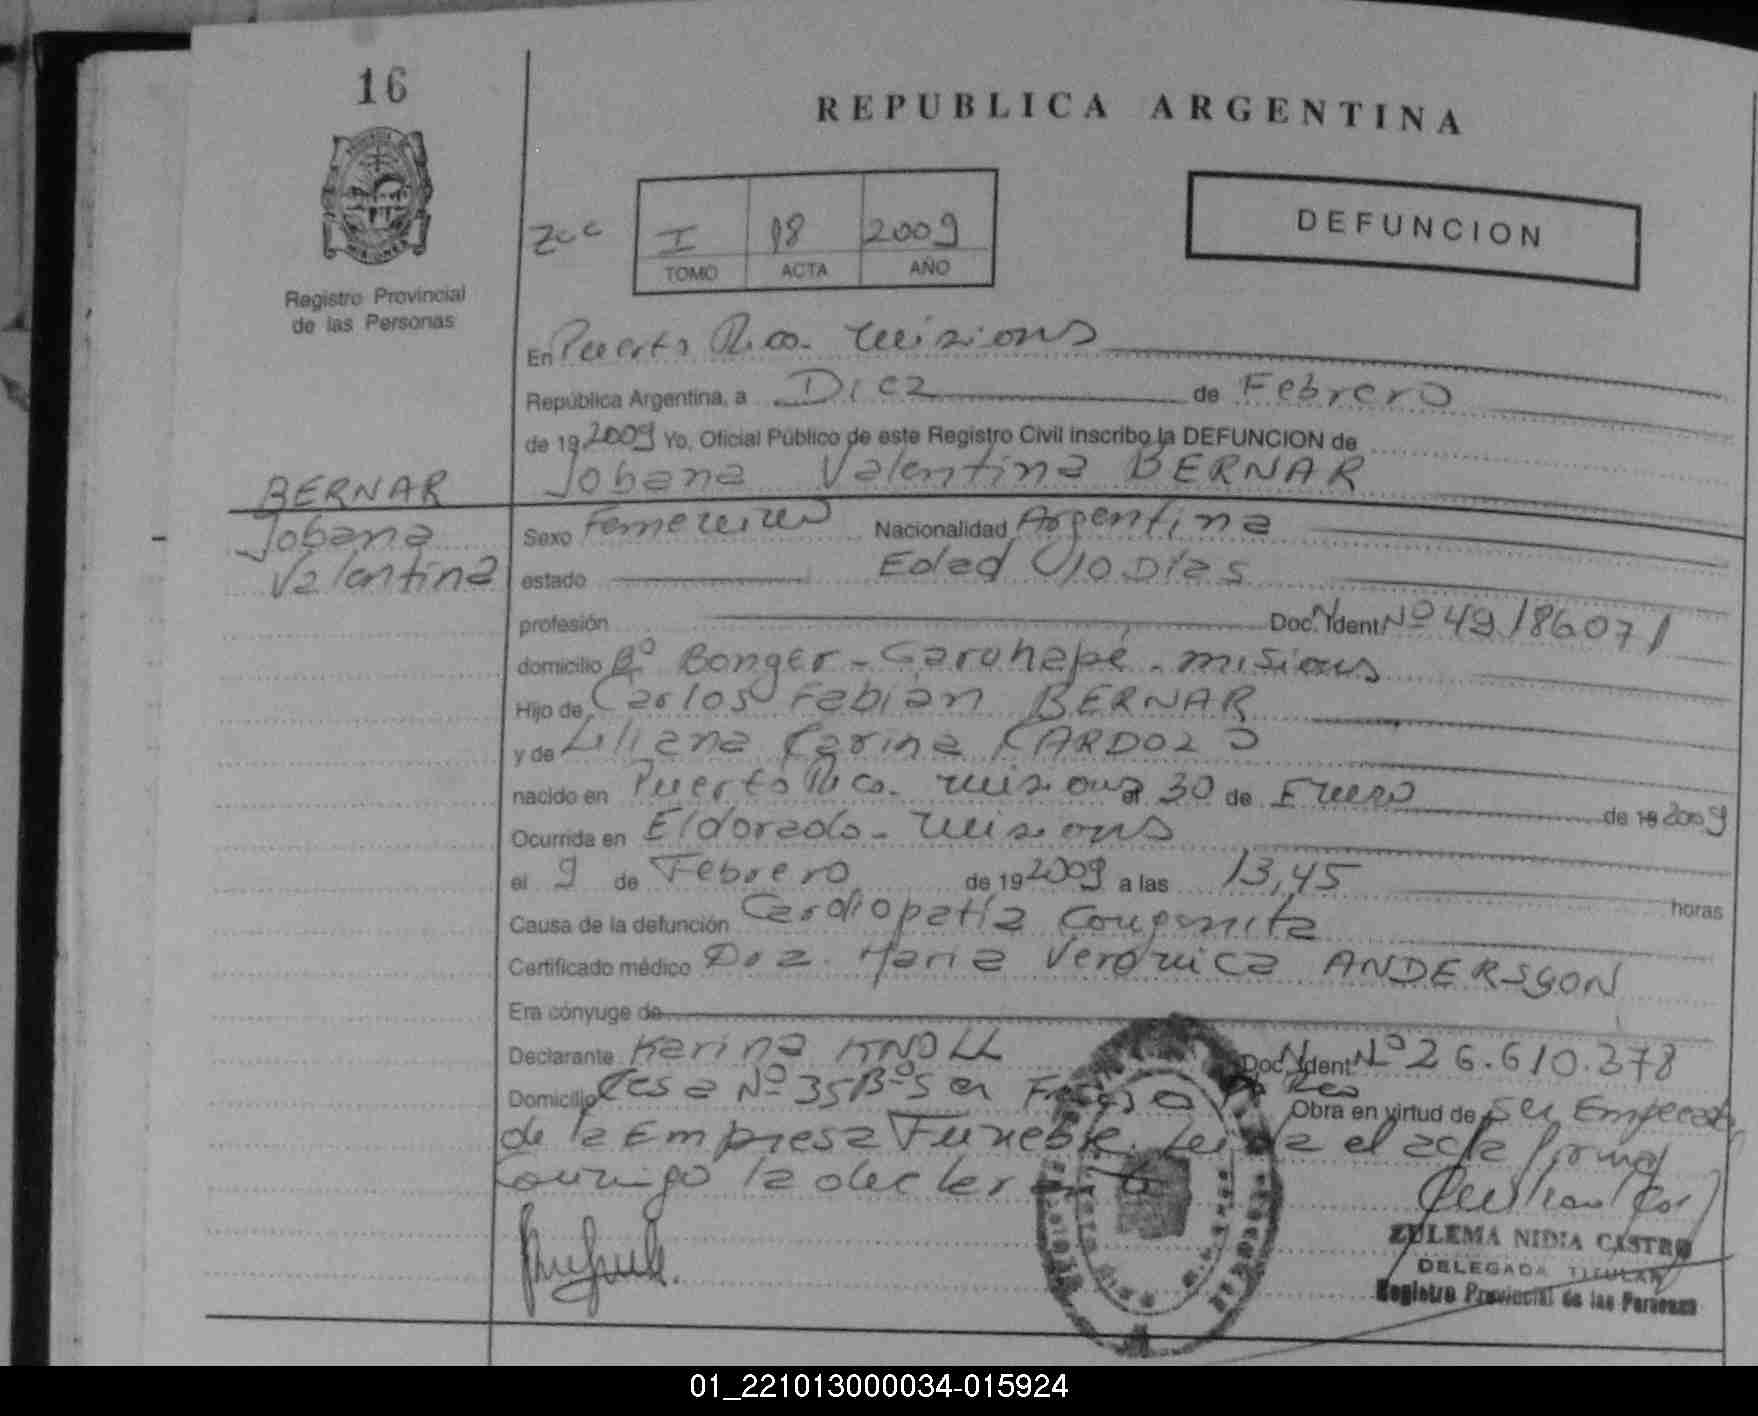 16
REPUBLICA ARGENTINA
Registro Provincial
de las Personas
I 18 2009
TOMO ACTA AÑO
DEFUNCION
En Puerto Rico. Misiones
República Argentina, a Diez de Febrero
de 19 2009 Yo, Oficial Público de este Registro Civil inscribo la DEFUNCION de
Jobana Valentina BERNAR
BERNAR
Jobana
Valentina
Sexo Femenino Nacionalidad Argentina
estado Edad 010 Días
profesión Doc. Ident Nº 49186071
domicilio Bº Bonger - Garuhapé - Misiones
Hijo de Carlos Fabián BERNAR
y de Liliana Carina CARDOZO
nacido en Puerto Rico. Misiones el 30 de Enero de 19 2009
Ocurrida en Eldorado - Misiones
el 9 de Febrero de 19 2009 a las 13,45 horas
Causa de la defunción Cardiopatía Congenita
Certificado médico Dra. Maria Veronica ANDERSSON
Era cónyuge de
Declarante Karina KNOLL Doc. Ident Nº 26.610.378
Domicilio Casa Nº 35 Bº Rco Obra en virtud de ser Empleada
de la Empresa Funebre. Leida el acta firma
Conmigo la declarante
ZULEMA NIDIA CASTRO
DELEGADA TITULAR
Registro Provincial de las Personas
01_221013000034-015924